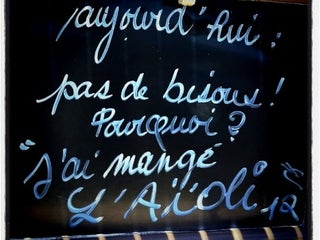 aujourd'hui :
pas de bisous !
Pourquoi ?
"J'ai mangé
L'Aïoli